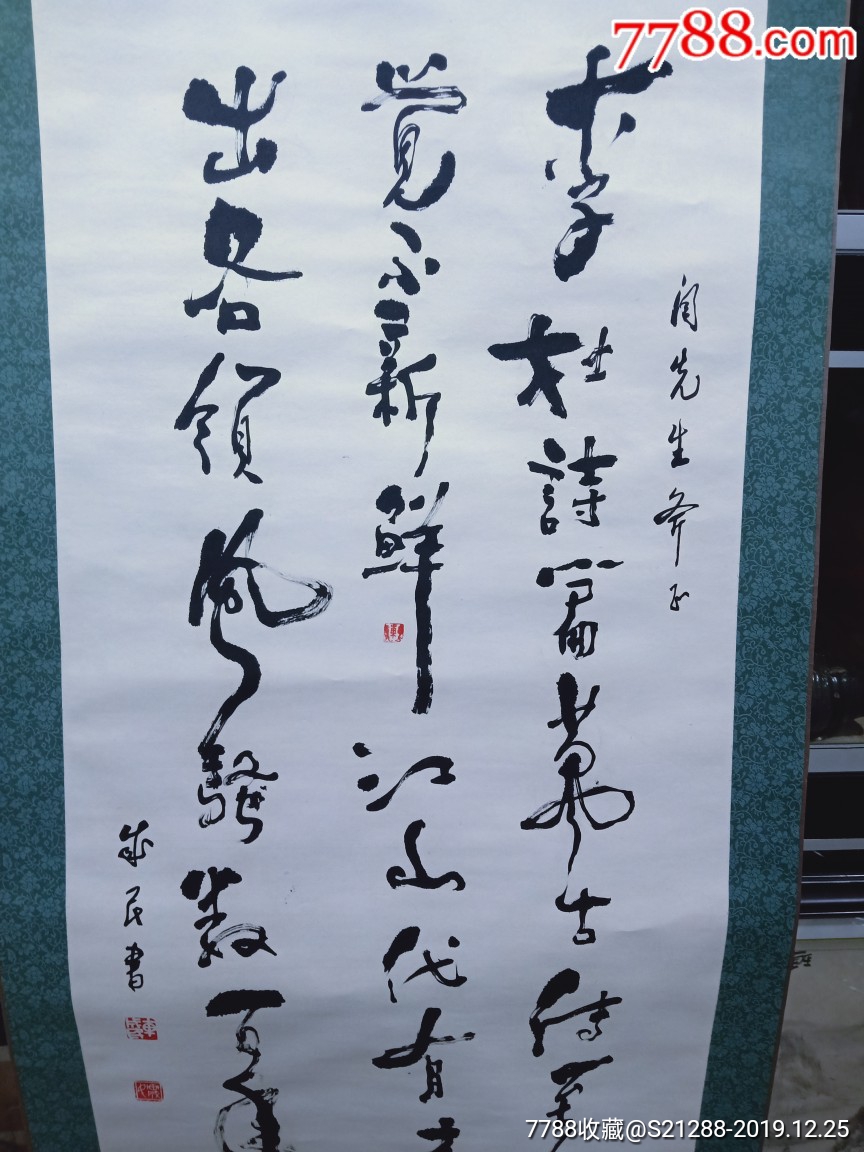 7788.com
先生斧正
李杜詩篇萬古傳至
覺不新鮮江山代有
出各領風騷數百年
成民書
7788收藏@S21288-2019.12.25